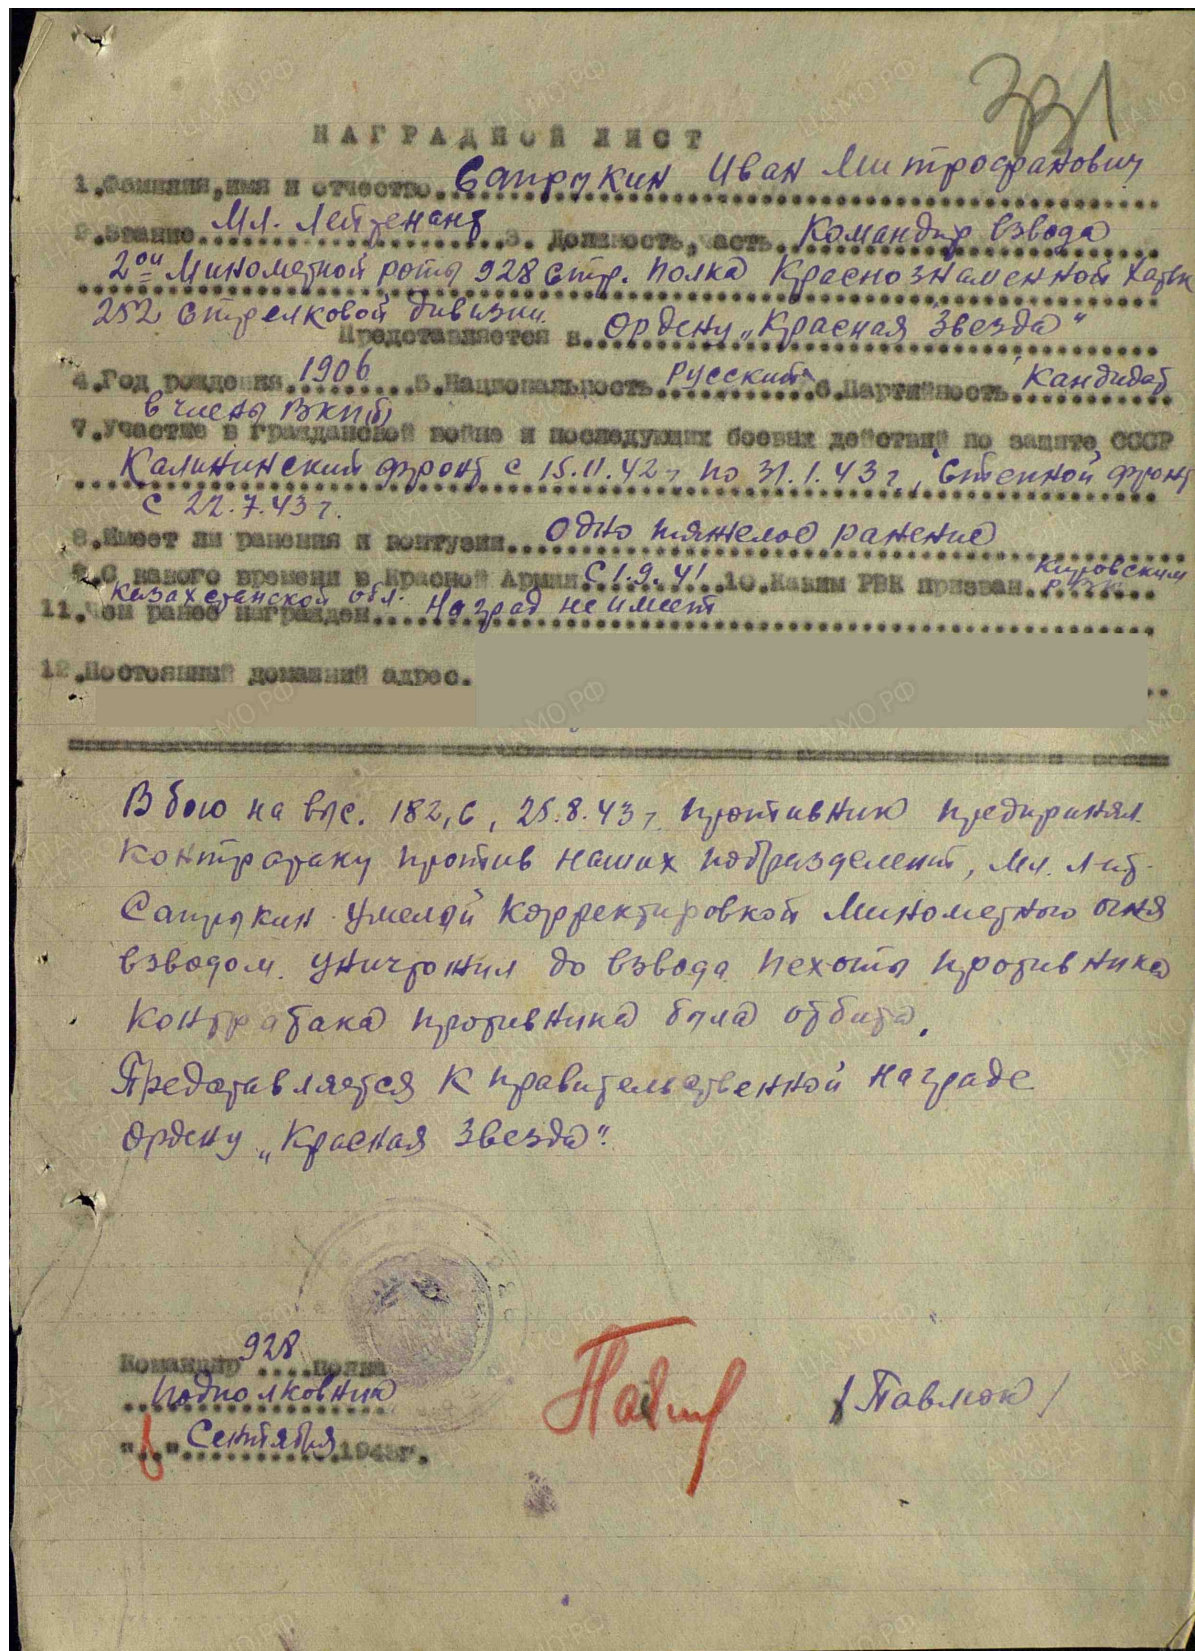 331
НАГРАДНОЙ ЛИСТ
1.Фамилия,имя и отчество. Сапрукин Иван Митрофанович
2.Звание Мл. Лейтенант 3. Должность,часть Командир взвода
2ой Минометной роты 928 стр. полка Краснознаменной Харьк
252 Стрелковой дивизии.
Представляется к Ордену „Красная Звезда"
4.Год рождения 1906 5.Национальность Русский 6.Партийность Кандидат
в члены ВКП(б)
7.Участие в гражданской войне и последующих боевых действий по защите СССР
Калининский фронт с 15.11.42 г по 31.1.43 г, Степной фронт
с 22.7.43 г.
8.Имеет ли ранения и контузии. Одно тяжелое ранение
9.С какого времени в Красной Армии С 1.9.41 10.Каким РВК призван Кировским
РВК
Казахстанской обл.
11.Чем ранее награжден Наград не имеет
12.Постоянный домашний адрес.
В бою на выс. 182,6, 25.8.43 г противник предпринял
контратаку против наших подразделений, Мл. Лейт.
Сапрукин умелой корректировкой минометного огня
взводом. уничтожил до взвода пехоты противника
Контратака противника была отбита.
Представляется к правительственной награде
Ордену „Красная Звезда".
Командир 928 полка
подполковник
/Павлюк/
" " Сентября 1943г.